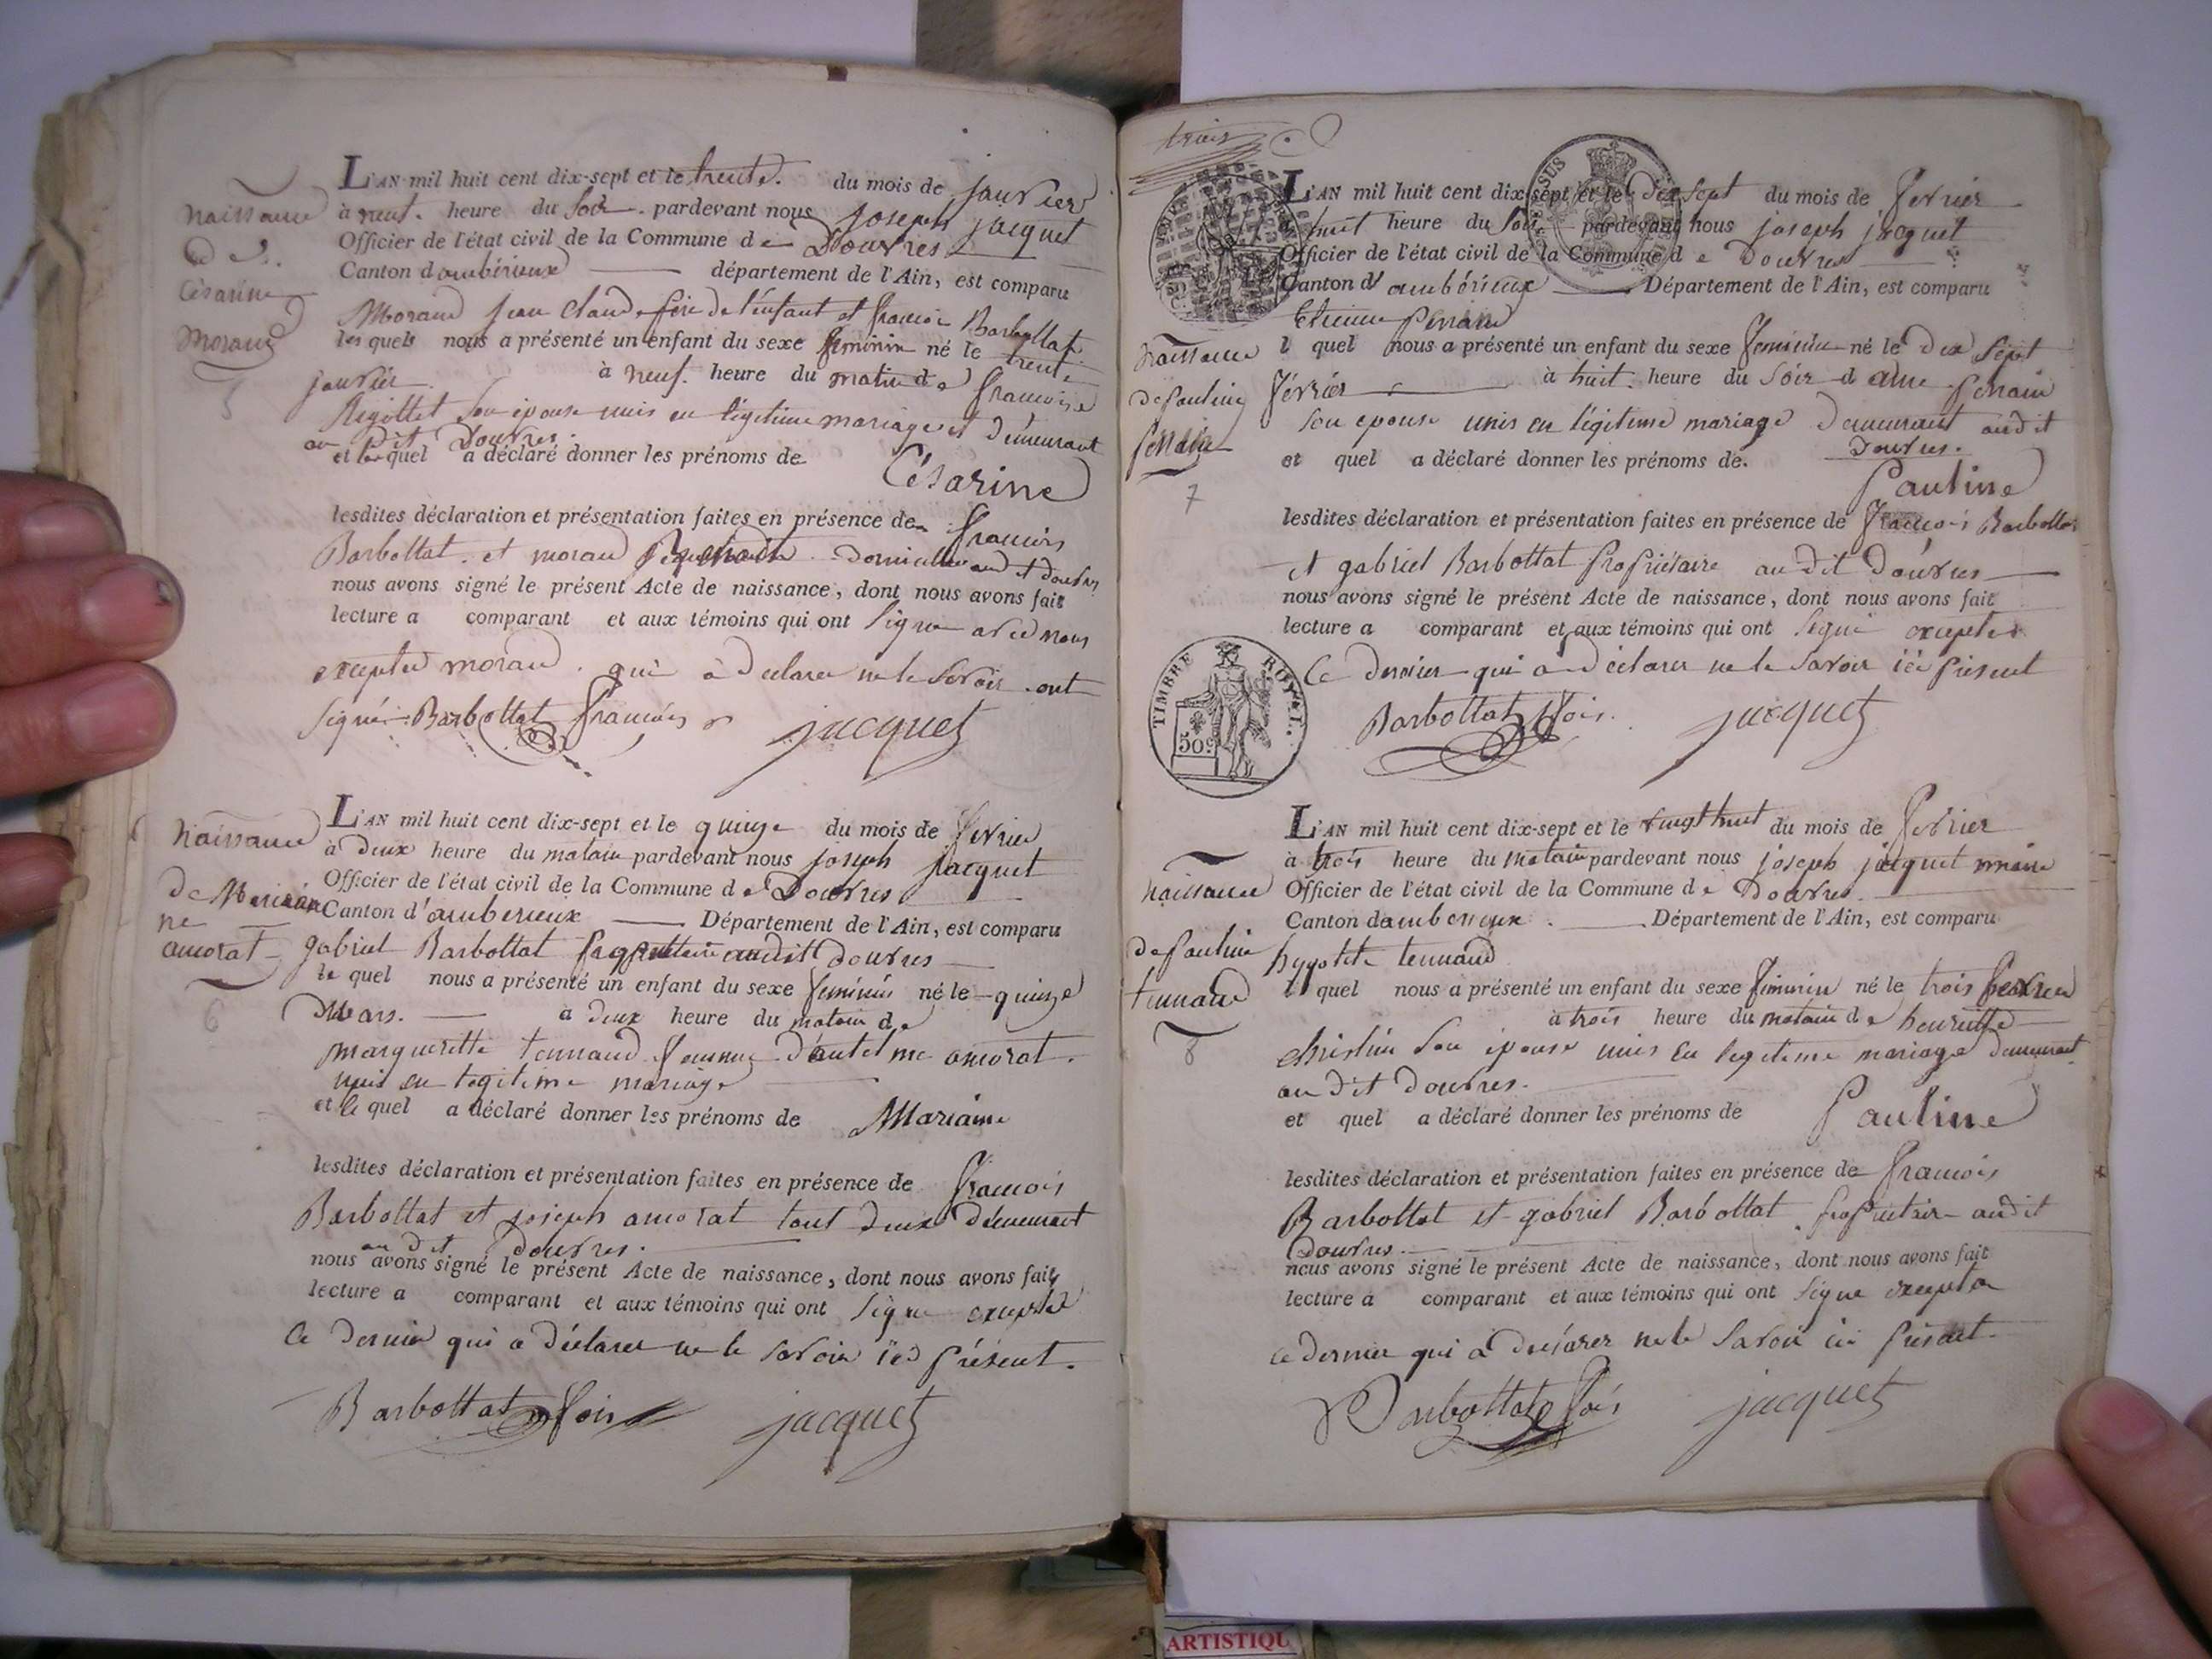 naissance
de
Césarine
Morand
5
L'AN mil huit cent dix-sept et le trente. du mois de janvier
à neuf. heure du soir. pardevant nous joseph jacquet
Officier de l'état civil de la Commune de Douvres
Canton d'ambérieux département de l'Ain, est comparu
Morand jean Claude père de l'enfant et françois Barbollat
lesquels nous a présenté un enfant du sexe feminin né le trente
janvier à neuf. heure du matin de françoise
Rigollet son épouse unis en légitime mariage et demeurant
au dit Douvres.
et lequel a déclaré donner les prénoms de
Césarine
lesdites déclaration et présentation faites en présence de françois
Barbollat. et morand domicilié audit douvres
nous avons signé le présent Acte de naissance, dont nous avons fait
lecture a comparant et aux témoins qui ont signé avec nous
excepter morand. qui à declarer ne le savoir. ont
signé. Barbollat françois jacquet
naissance
de Mariane
amorat
6
L'AN mil huit cent dix-sept et le quinze du mois de fevrier
à deux heure du matain pardevant nous joseph jacquet
Officier de l'état civil de la Commune de Douvres
Canton d'amberieux Département de l'Ain, est comparu
gabriel Barbollat propriettaire audit douvres
le quel nous a présenté un enfant du sexe feminin né le quinze
Mars. à deux heure du matain de
margueritte tennand femme d'antelme amorat.
unis en legitime mariage
et le quel a déclaré donner les prénoms de Mariane
lesdites déclaration et présentation faites en présence de françois
Barbollat et joseph amorat tout deux demeurant
au dit douvres.
nous avons signé le présent Acte de naissance, dont nous avons fait
lecture a comparant et aux témoins qui ont signé excepté
ce dernier qui a déclarer ne le savoir ici présent.
Barbollat fois jacquet
trois
naissance
de pauline
perrain
7
L'AN mil huit cent dix-sept et le dix sept du mois de fevrier
à huit heure du soir pardevant nous joseph jacquet
Officier de l'état civil de la Commune de Douvres
Canton d'ambérieux Département de l'Ain, est comparu
Etienne perrain
l quel nous a présenté un enfant du sexe feminin né le dix sept
février à huit. heure du soir d perrain
son epouse unis en légitime mariage demeurant audit
Douvres.
et quel a déclaré donner les prénoms de.
Pauline
lesdites déclaration et présentation faites en présence de françois Barbollat
et gabriel Barbollat propriétaire au dit douvres
nous avons signé le présent Acte de naissance, dont nous avons fait
lecture a comparant et aux témoins qui ont signé excepter
ce dernier qui a déclarer ne le savoir ici présent
TIMBRE ROYAL
50c
Barbollat fois. jacquet
naissance
de pauline
tennand
8
L'AN mil huit cent dix-sept et le vingt huit du mois de fevrier
à trois heure du matain pardevant nous joseph jacquet maire
Officier de l'état civil de la Commune de Douvres.
Canton d'amberieux. Département de l'Ain, est comparu
hypolite tennand
l quel nous a présenté un enfant du sexe feminin né le trois fevrier
à trois heure du matain de henriette
christin son epouse unis en legitime mariage demeurant
au dit douvres.
et quel a déclaré donner les prénoms de Pauline
lesdites déclaration et présentation faites en présence de françois
Barbollat et gabriel Barbollat propriétair audit
Douvres.
nous avons signé le présent Acte de naissance, dont nous avons fait
lecture a comparant et aux témoins qui ont signé excepter
ce dernier qui a declarer ne le savoir ici présent.
Barbollat fois jacquet
ARTISTIQU